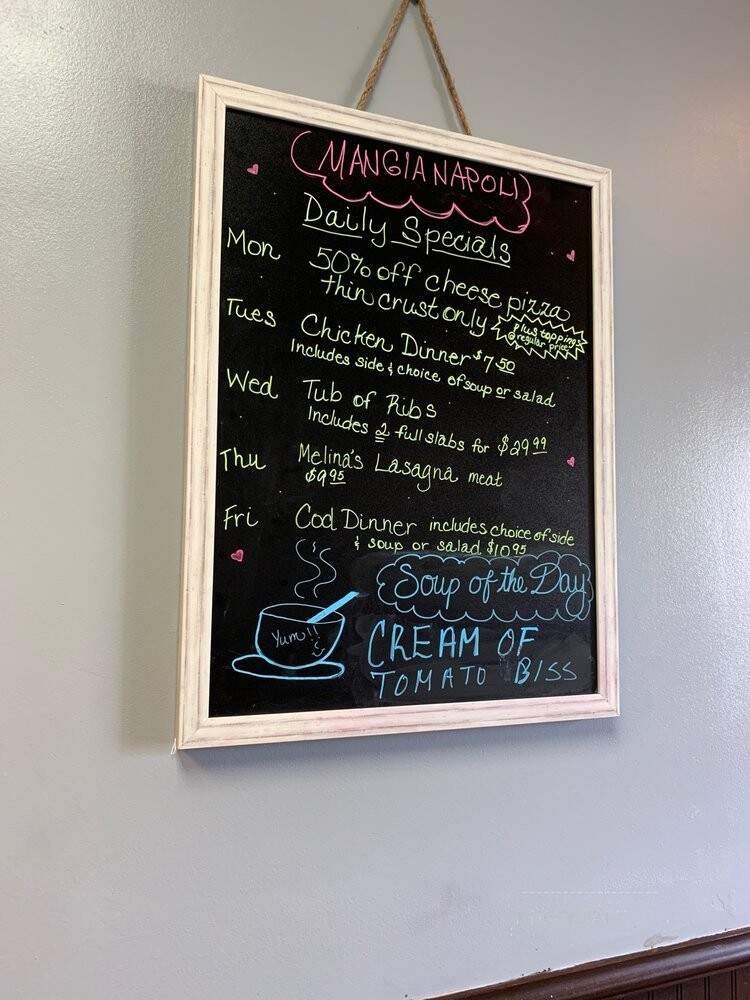 MANGIA NAPOLI
Daily Specials
Mon 50% off cheese pizza
thin crust only plus toppings
@ regular price
Tues Chicken Dinner $7.50
Includes side & choice of soup or salad
Wed Tub of Ribs
Includes 2 full slabs for $29.99
Thu Melina's Lasagna meat
$9.95
Fri Cod Dinner includes choice of side
& soup or salad $10.95
Soup of the Day
Yum!!
CREAM OF
TOMATO BISS